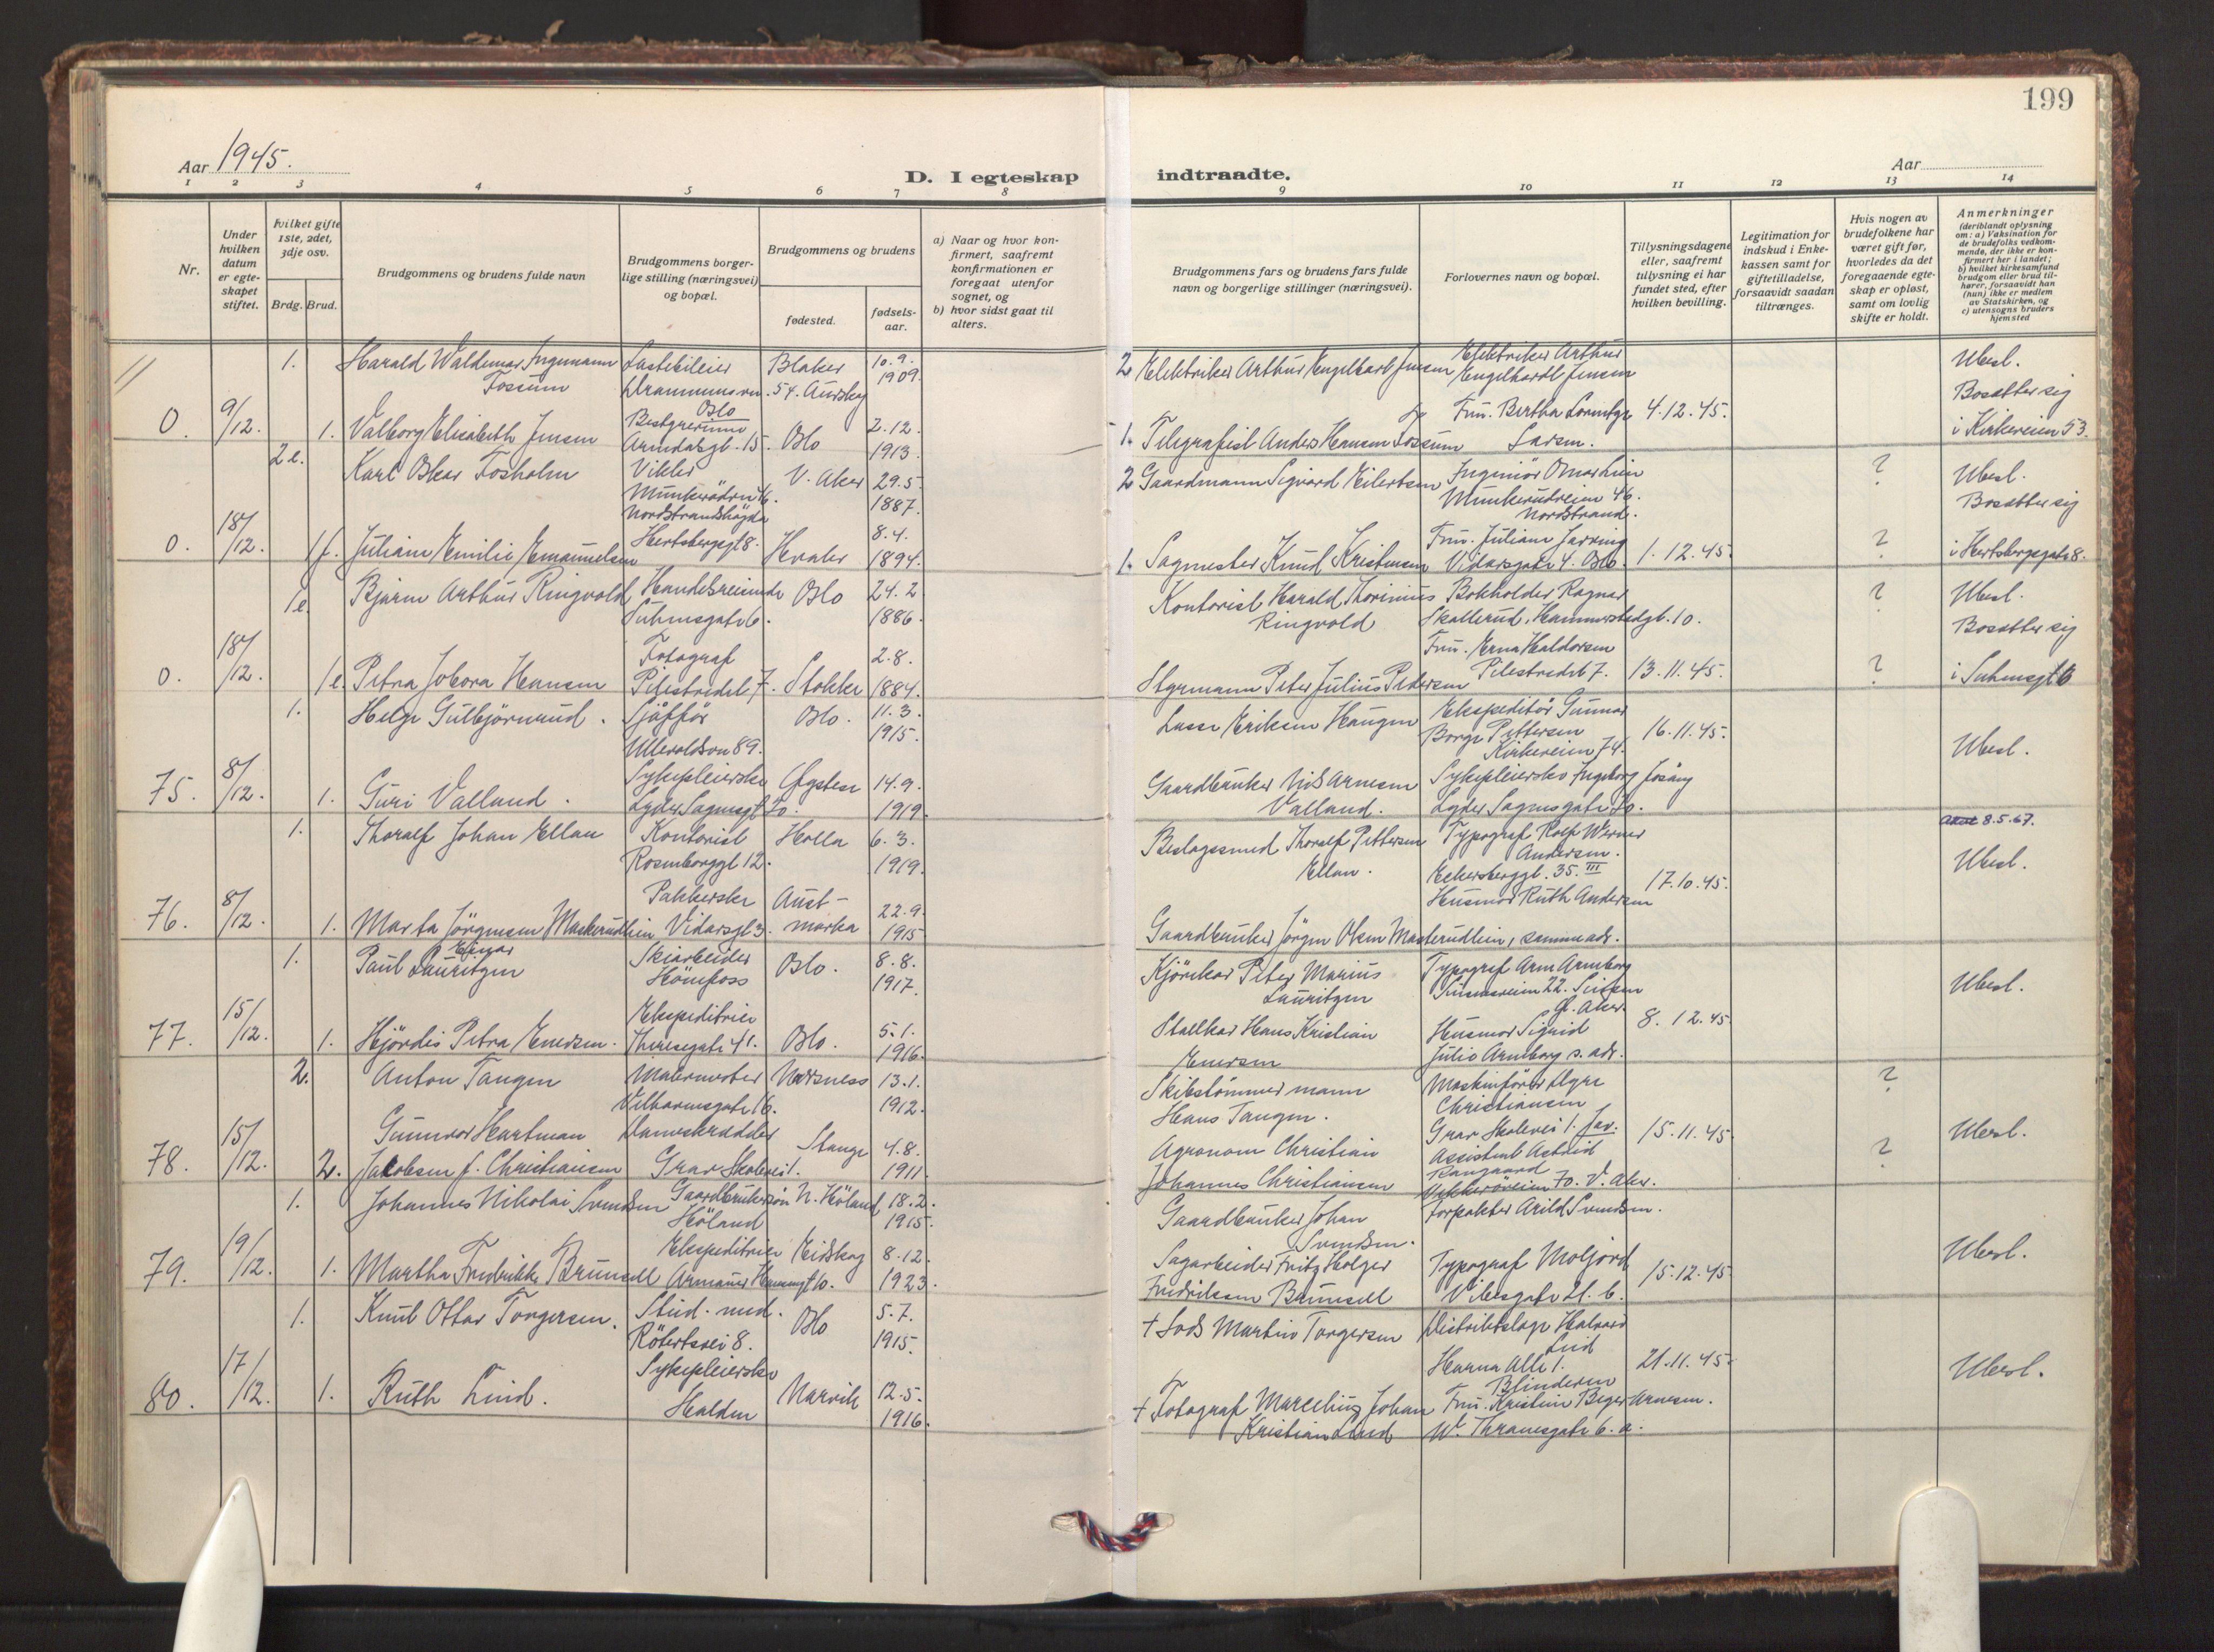 199
Aar 1945.
D. I egteskap indtraadte.
Aar
1 2 3 4 5 6 7 8 9 10 11 12 13 14
Nr.
Under hvilken datum er egte-skapet stiftet.
Hvilket gifte 1ste, 2det, 3dje osv.
Brdg. Brud.
Brudgommens og brudens fulde navn
Brudgommens borger-lige stilling (næringsvei) og bopæl.
Brudgommens og brudens
fødested.
fødsels-aar.
a) Naar og hvor kon-firmert, saafremt konfirmationen er foregaat utenfor sognet, og
b) hvor sidst gaat til alters.
Brudgommens fars og brudens fars fulde navn og borgerlige stillinger (næringsvei).
Forlovernes navn og bopæl.
Tillysningsdagene eller, saafremt tillysning ei har fundet sted, efter hvilken bevilling.
Legitimation for indskud i Enke-kassen samt for giftetilladelse, forsaavidt saadan tiltrænges.
Hvis nogen av brudefolkene har været gift før, hvorledes da det foregaaende egte-skap er opløst, samt om lovlig skifte er holdt.
Anmerkninger
(deriblandt oplysning om: a) Vaksination for de brudefolks vedkom-mende, der ikke er kon-firmert her i landet;
b) hvilket kirkesamfund brudgom eller brud til-hører, forsaavidt han (hun) ikke er medlem av Statskirken, og
c) utensogns bruders hjemsted
1. Harald Waldemar Ingemann Fossum
Lastebileier Drammensvn. 54. Oslo
Blaker Aurskog
10.9. 1909
2 Elektriker Arthur Engelhart Jensen
Elektriker Arthur Engelhardt Jensen
Ubesl.
Bosætter sig i Kirkeveien 53.
0. 9/12. 1. Valborg Elisabeth Jensen
Bestyrerinne Arendalsgt. 15.
Oslo
2.12. 1913
1. Telegrafist Anders Hansen Fossum
Fru. Bertha Larsen.
4.12.45.
2 e. Karl Oskar Fosholm
Munkerudvn 46. Nordstrandshøgda
V. Aker
29.5 1887.
2 Gaardmann Sigvard Eilertsen
Ingeniør Omar Lien Munkerudveien 46. Nordstrand.
?
Ubesl.
Bosætter sig i Hertsbergsgate 8.
0. 18/12. 1 f. Juliane Emilie Emanuelsen
Hertsbergsgt 8.
Hvaler
8.4. 1894.
1. Sagmester Knud Kristensen
Fru. Juliane Vidarsgate 4. Oslo.
1.12.45.
?
1 e. Bjarne Arthur Ringvold
Handelsreisende Suhmsgate 6.
Oslo
24.2 1886.
Kontorist Harald Thorinius Ringvold
Bokholder Ragnar Skallerud, Hammerstadgt. 10.
?
Ubesl.
Bosætter sig i Suhmsgt 6
0. 18/12. 1 e. Petra Jobora Hansen
Fotograf Pilestredet 7.
Stokke
2.8. 1884.
Styrmann Peter Julius Pedersen
Fru. Erna Haldorsen Pilestredet 7.
13.11.45.
?
1. Helge Gulbjörnrud.
Sjåffør Ullevoldsvn 89.
Oslo.
11.3. 1915.
Lasse Eriksen Haugen
Ekspeditør Gunnar Borge Pettersen Kirkeveien 74.
16.11.45.
Ubesl.
75. 8/12. 1. Guri Valland.
Sykepleierske Lyder Sagensgt 20.
Øystese
14.9. 1919.
Gaardbruker Nils Arnesen Valland.
Sykepleierske Ingeborg Jøsang Lyder Sagensgate 20.
1. Thoralf Johan Ellan
Kontorist Rosenborggt 12.
Holla
6.3. 1919.
Beslagssmed Thoralf Pettersen Ellan.
Typograf Rolf Werner Andersen. Eckersberggt. 35. III
8.5.67.
Ubesl.
76. 8/12. 1. Marta Jörgensen Maskerudlien
Pakkerske Vidarsgt 3.
Aust-marka
22.9. 1915
Gaardbruker Jörgen Olsen Maskerudlien,
Husmor Ruth Andersen samme adr.
17.10.45.
1. Paul Einar Lauritzen
Skiarbeider Hönefoss
Oslo.
8.8. 1917.
Kjörekar Peter Marius Lauritzen
Typograf Arne Arneberg
Ubesl.
77. 15/12. 1. Hjördis Petra Enersen.
Ekspeditrise Theresegate 41.
Oslo.
5.1. 1916.
Stallkar Hans Kristian Enersen
Husmor Sigrid Julie Arneberg s. adr.
8.12.45
2. Anton Tangen
Malermester Vilhelmsgate 16.
Nærsnes
13.1. 1912.
Skibstömmermann Hans Tangen.
Maskinfører Aage Christiansen Grav Skolevei 1. Jar.
?
Ubesl.
78. 15/12. 2. Gunnvor Hartman Jakobsen f. Christiansen
Dameskredder Grav Skolevei 1.
Stange
4.8. 1911.
Agronom Christian Johannes Christiansen
Assistent Astrid Vækkeröveien 70. V. Aker.
15.11.45.
?
1. Johannes Nikolai Svendsen
Gaardbrukersön Höland
N. Höland
18.2. 1915.
Gaardbruker Johan Svendsen.
Forpakter Arild Svendsen.
Ubesl.
79. 19/12. 1. Martha Fredrikke Brunsell
Ekspeditrise Armauer Hansensgt 10.
Eidskog
8.12. 1923.
Sagarbeider Fritz Holger Fredriksen Brunsell
Typograf Moljord Vibesgate 21. b.
15.12.45
1. Knut Ottar Torgersen.
Stud. med. Robertsvei 8.
Oslo
5.7. 1915.
+ Lods Martin Torgersen
Distriktslege Halvard Lind Hanna Alle 1. Blindern
21.11.45.
Ubesl.
80. 17/12. 1. Ruth Lind.
Sykepleierske Halden
Narvik
12.5. 1916.
+ Fotograf Marcelius Johan Kristian Lind
Fru. Kristine Beyer Arnesen. W. Thranesgate 6. a.